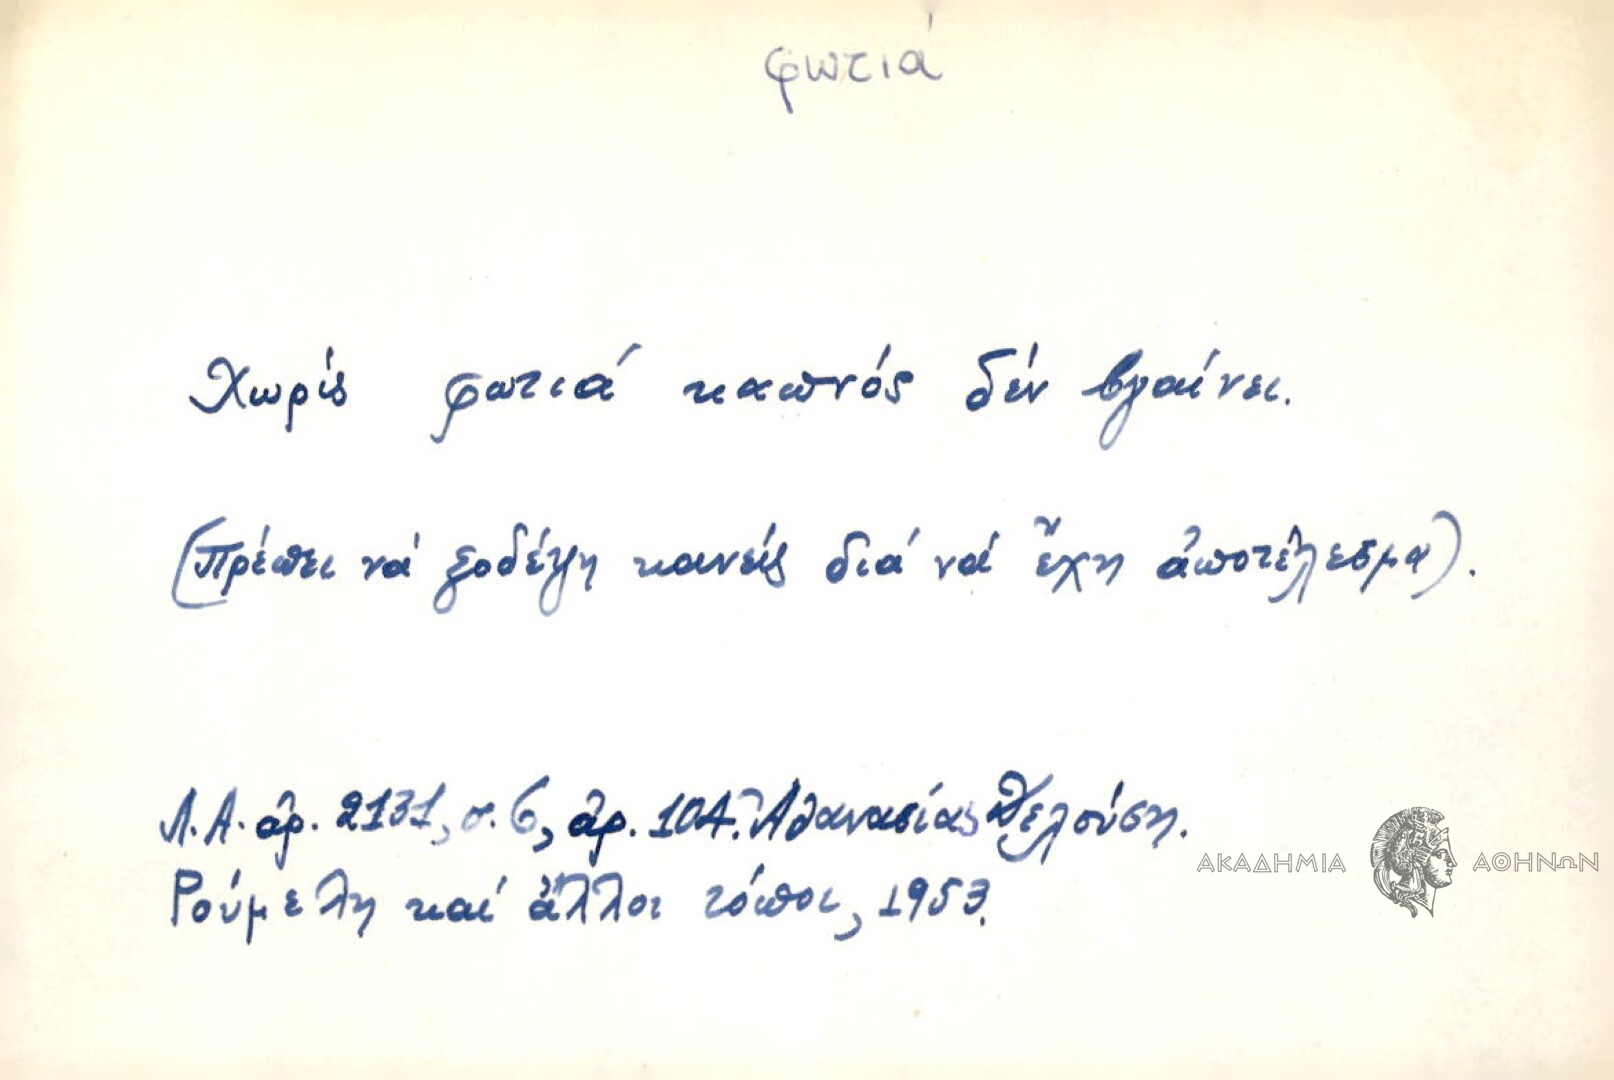 φωτιά
Χωρίς φωτιά καπνός δέν βγαίνει.
(Πρέπει νά ξοδέψη κανείς διά νά ἔχη ἀποτέλεσμα).
Λ.Α. ἀρ. 2131, σ. 6, ἀρ. 104. Ἀθανασίας
Ρούμελη καί ἄλλοι τόποι, 1953.
ΑΚΑΔΗΜΙΑ ΑΘΗΝΩΝ